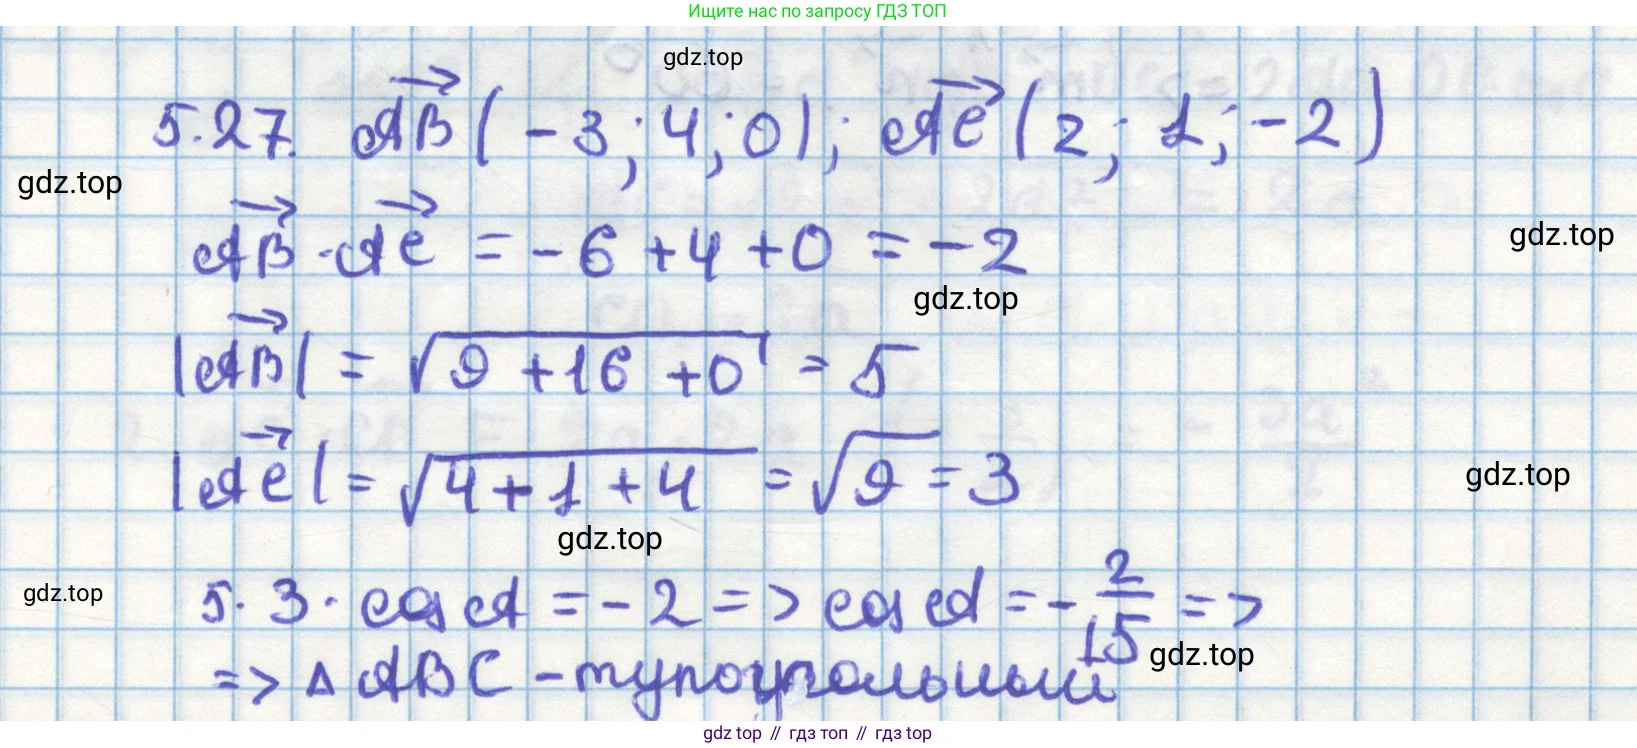 Ищите нас по запросу ГДЗ ТОП
gdz.top
5.27. AB(-3; 4; 0); AC(2; 1; -2)
gdz.top
gdz.top
AB · AC = -6 + 4 + 0 = -2
gdz.top
|AB| = √9 + 16 + 0 = 5
|AC| = √4 + 1 + 4 = √9 = 3
gdz.top
gdz.top
gdz.top
5 · 3 · cos A = -2 => cos A = -2/15 =>
gdz.top
=> Δ ABC - тупоугольный
gdz.top // гдз топ // гдз top